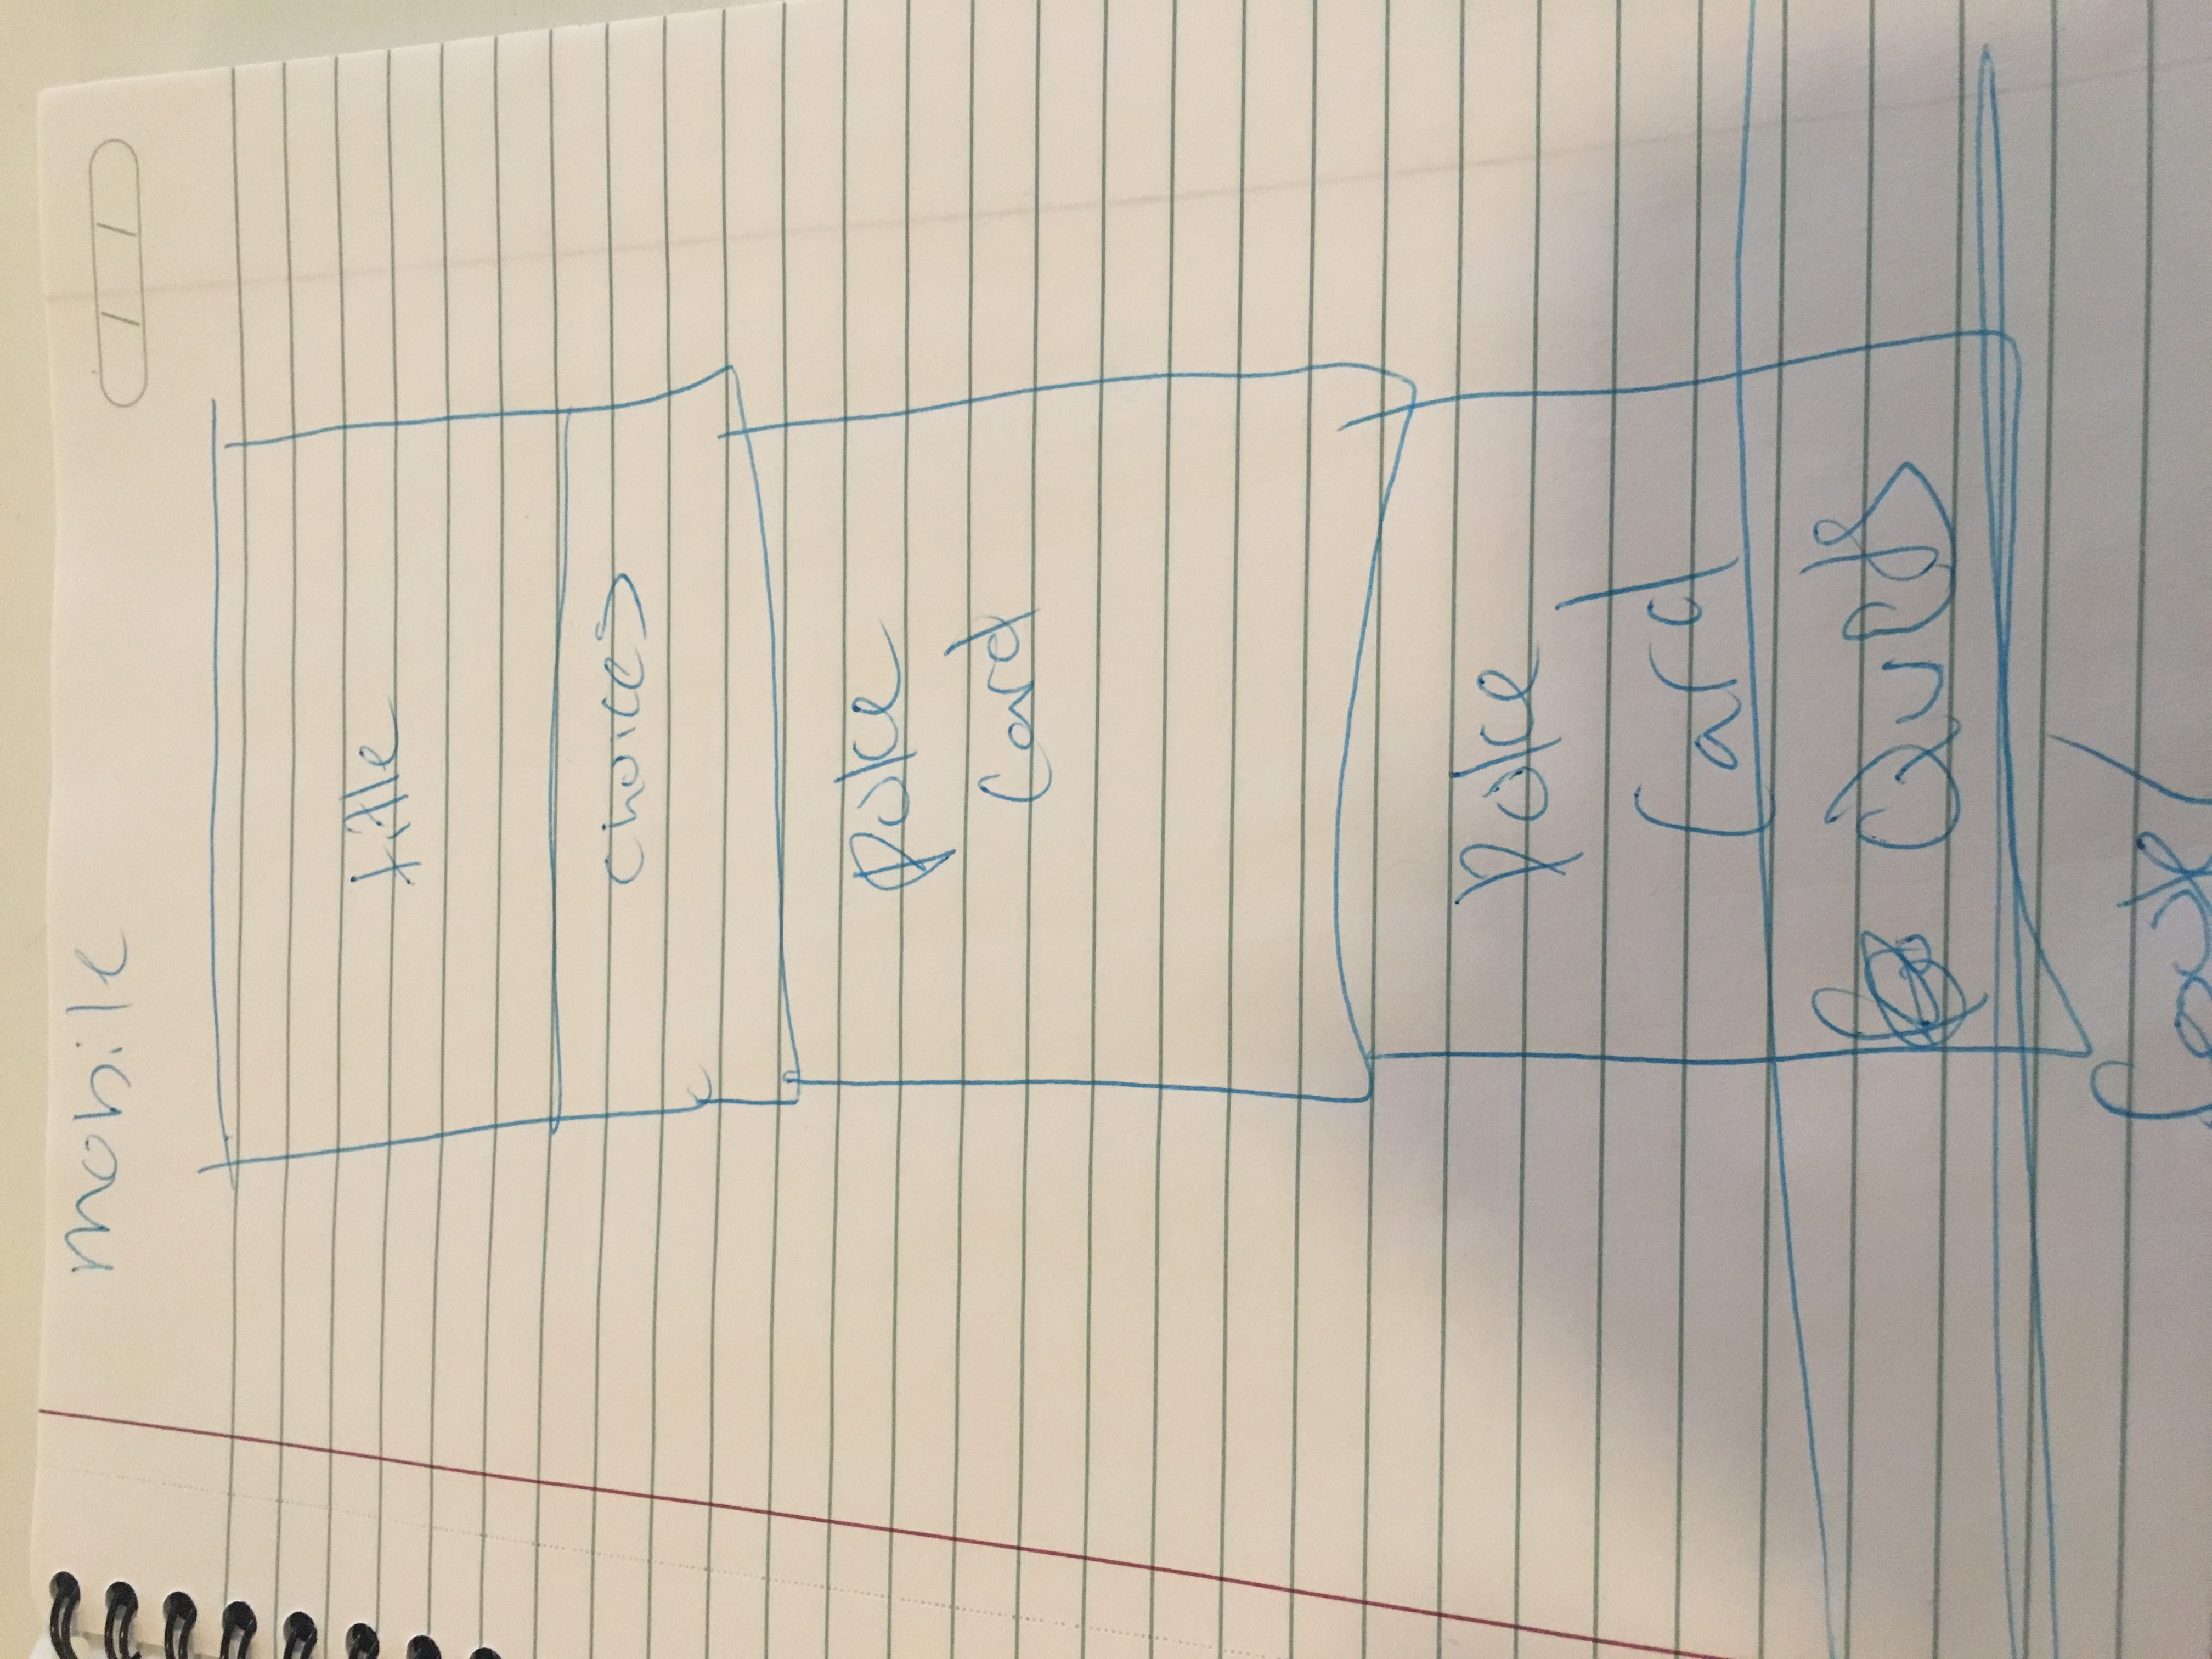 mobile
title
choices
poke
card
poke
card
footer